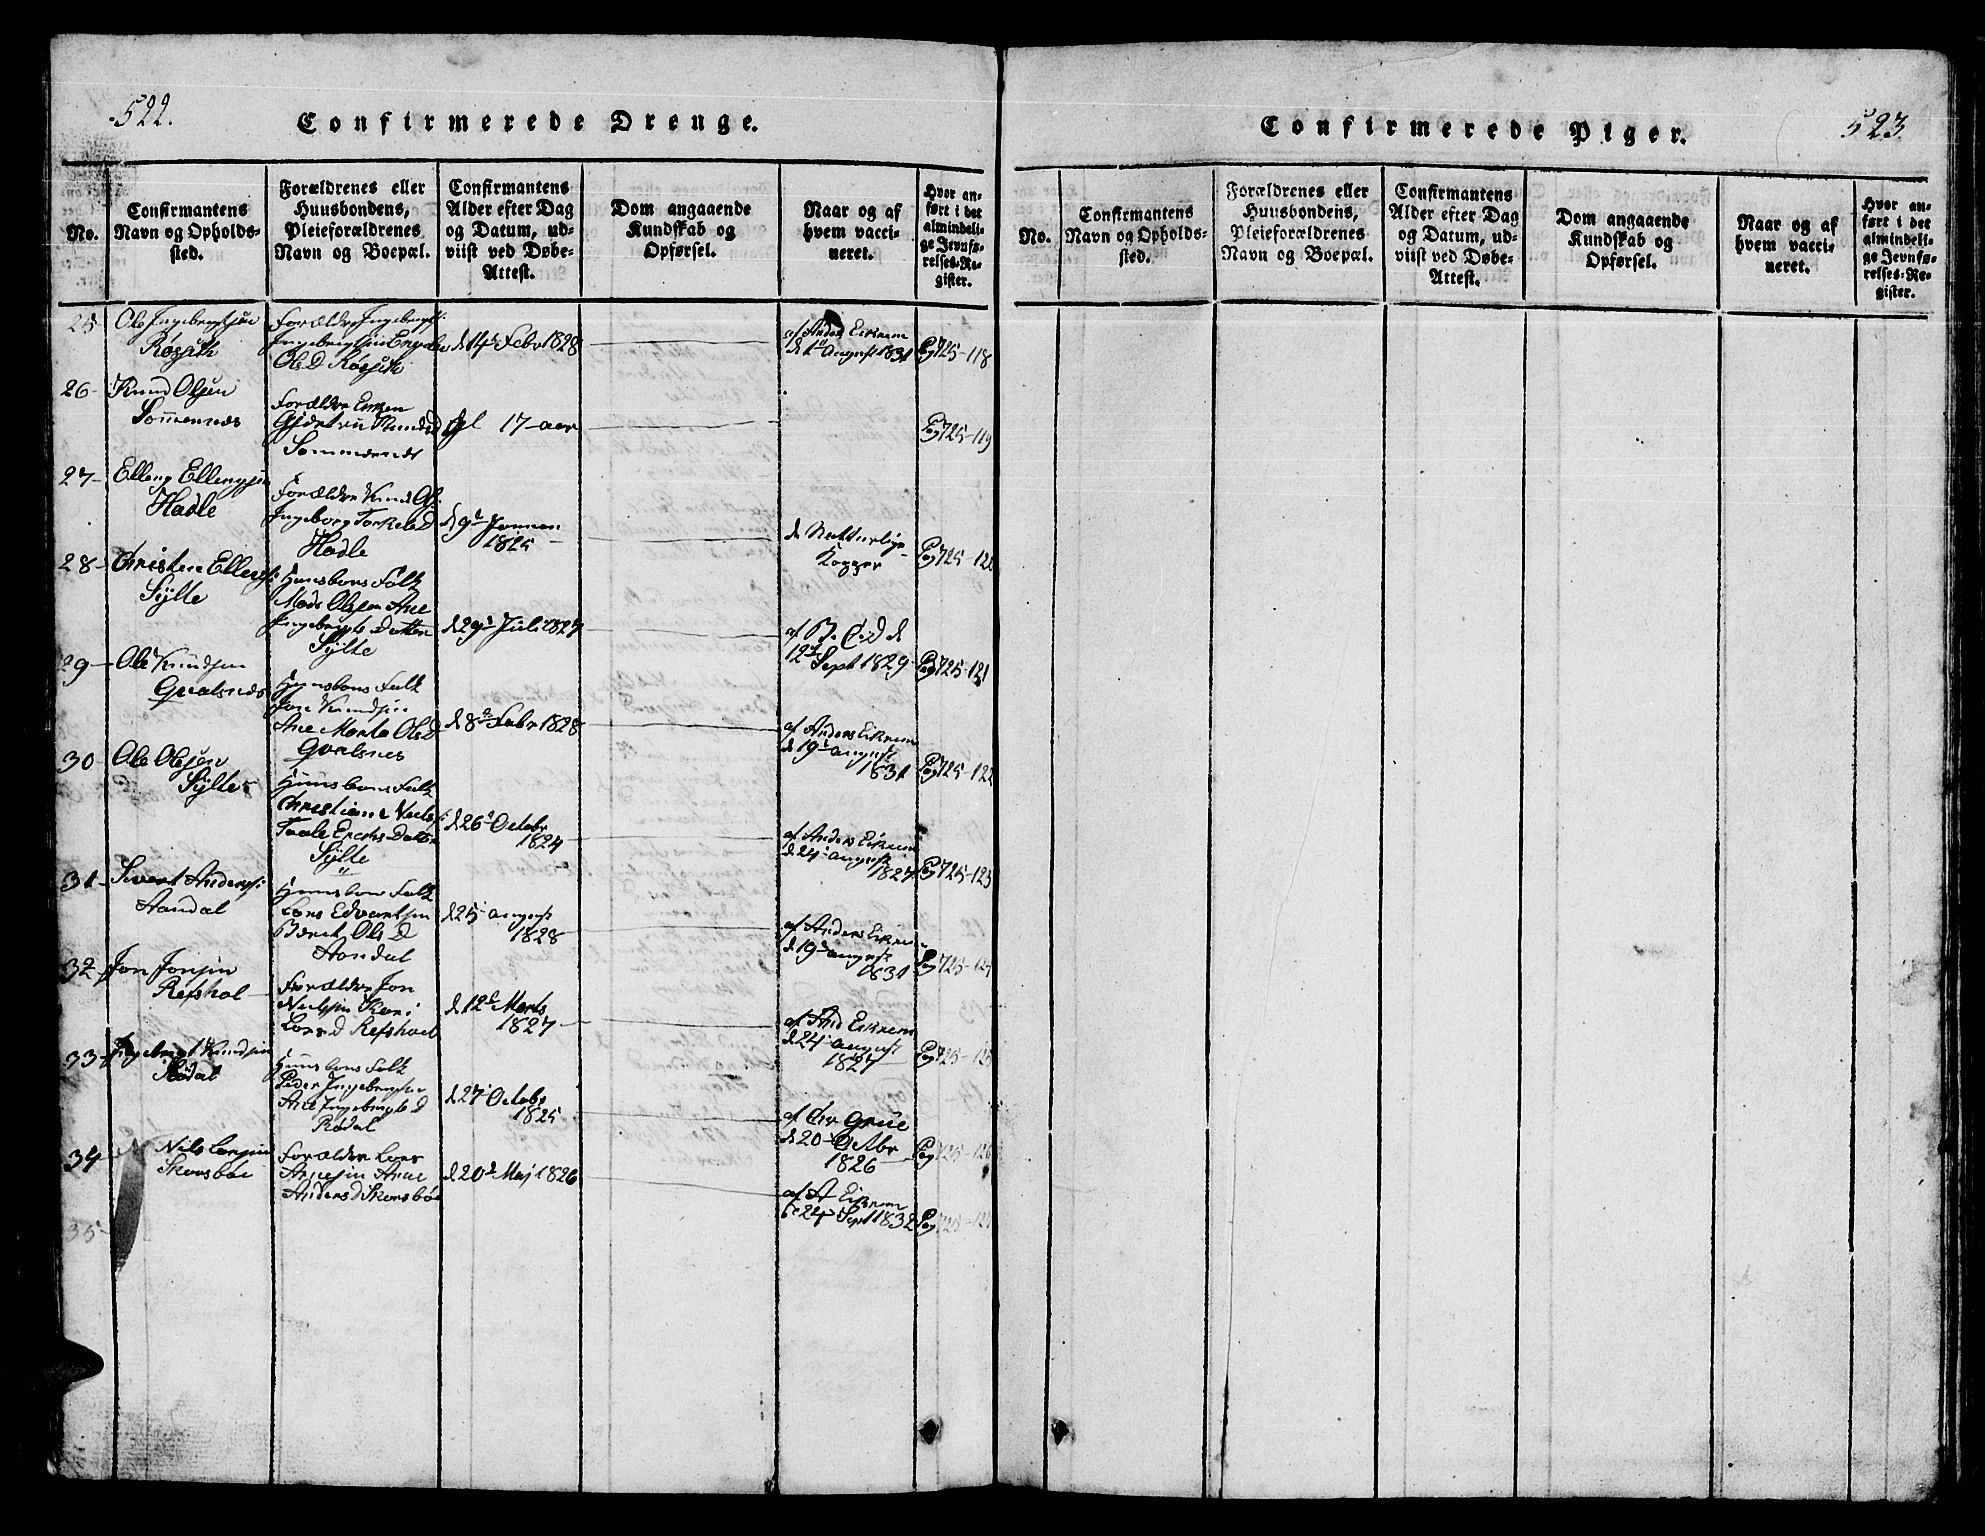 522.
Confirmerede Drenge.
No.
Confirmantens
Navn og Opholds-
sted.
Forældrenes eller
Huusbondens,
Pleieforældrenes
Navn og Boepæl.
Confirmantens
Alder efter Dag
og Datum, ud-
viist ved Døbe-
Attest.
Dom angaaende
Kundskab og
Opførsel.
Naar og af
hvem vacci-
neret.
Hvor an-
ført i det
almindeli-
ge Jevnfø-
relses-Re-
gister.
25
Ole Ingebrigtsen
Røssik
Forældre Ingebrigt
OlsD Røssik
d 14de Febr 1828
af Ander Eikrem
d 1 August 1831
Pag 725-118
26-
Knud Olsen
Sommernæs
Forældre
Sommernæs
17-aar
Pag 725-119
27-
Elling Ellingsen
Hadle
Forældre Knud
Ingeborg TorkelsD
Hadle
d 9de Januar
1825
d Naturlige
Kopper
Pag 725-120
28-
Christen Ellings:
Sylte
Huusbons Folk
Mads Olsen Ane
Ingebrigts Datter
Sylte
d 29d Juli 1827
12te Sept 1829
Pag 725-121
29-
Ole Knudsen
Gualsnes
Huusbons Folk
Jon Knudsen
Ane Marta OlsD
Gvalsnes
d 8de Febr 1828
af Anders Eikrem
d 19d august
1831
Pag 725-122
30-
Ole Olsen
Sylte
Huusbons Folk
Christian Niels
Sylte
d 26d Octobr
1824
af Anders Eikrem
d 24 august
1827
Pag 725-123
31-
Sivert Anders:
Aandal
Huusbons Folk
Lars Edvartsen
Beret Ols D
Aandal
d 25 august
1828
af Anders Eikrem
d 19d august
1831
Pag 725-124
32-
Jon Jonsen
Refshal
Forældre Jon
Nielsen Kari
LarsD Refshal
d 12d Marts
1827
af And Eikrem
d 24 august
1827
Pag 725-125
33
Ingebrigt Knudsen
Rødal
Huusbons Folk
Peder Ingebrigtsen
Ane Ingebrigts D
Rødal
d 27 Octobr
1825
af Chr Grüe
d 20 Octbr
1826
Pag 725-126
34-
Niels Larsen
Skorsbøe
Forældre Lars
Ane
Anders D Skorsbøe
d 20d Maj 1826
af A Eikrem
24 Sept 1832
Pag 725-127
35-
523
Confirmerede Piger.
No.
Confirmantens
Navn og Opholds-
sted.
Forældrenes eller
Huusbondens,
Pleieforældrenes
Navn og Boepæl.
Confirmantens
Alder efter Dag
og Datum, ud-
viist ved Døbe-
Attest.
Dom angaaende
Kundskab og
Opførsel.
Naar og af
hvem vacci-
neret.
Hvor an-
ført i det
almindeli-
ge Jevnfø-
relses-Re-
gister.